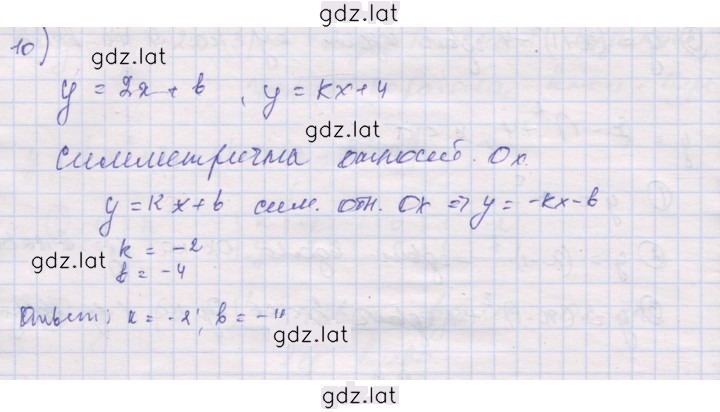 gdz.lat
10)
gdz.lat
y = 2x + b, y = kx + 4
gdz.lat
симметрична относит. Ox.
y = kx + b сим. отн. Ox => y = -kx - b
k = -2
gdz.lat
b = -4
Ответ: k = -2; b = -4
gdz.lat
gdz.lat